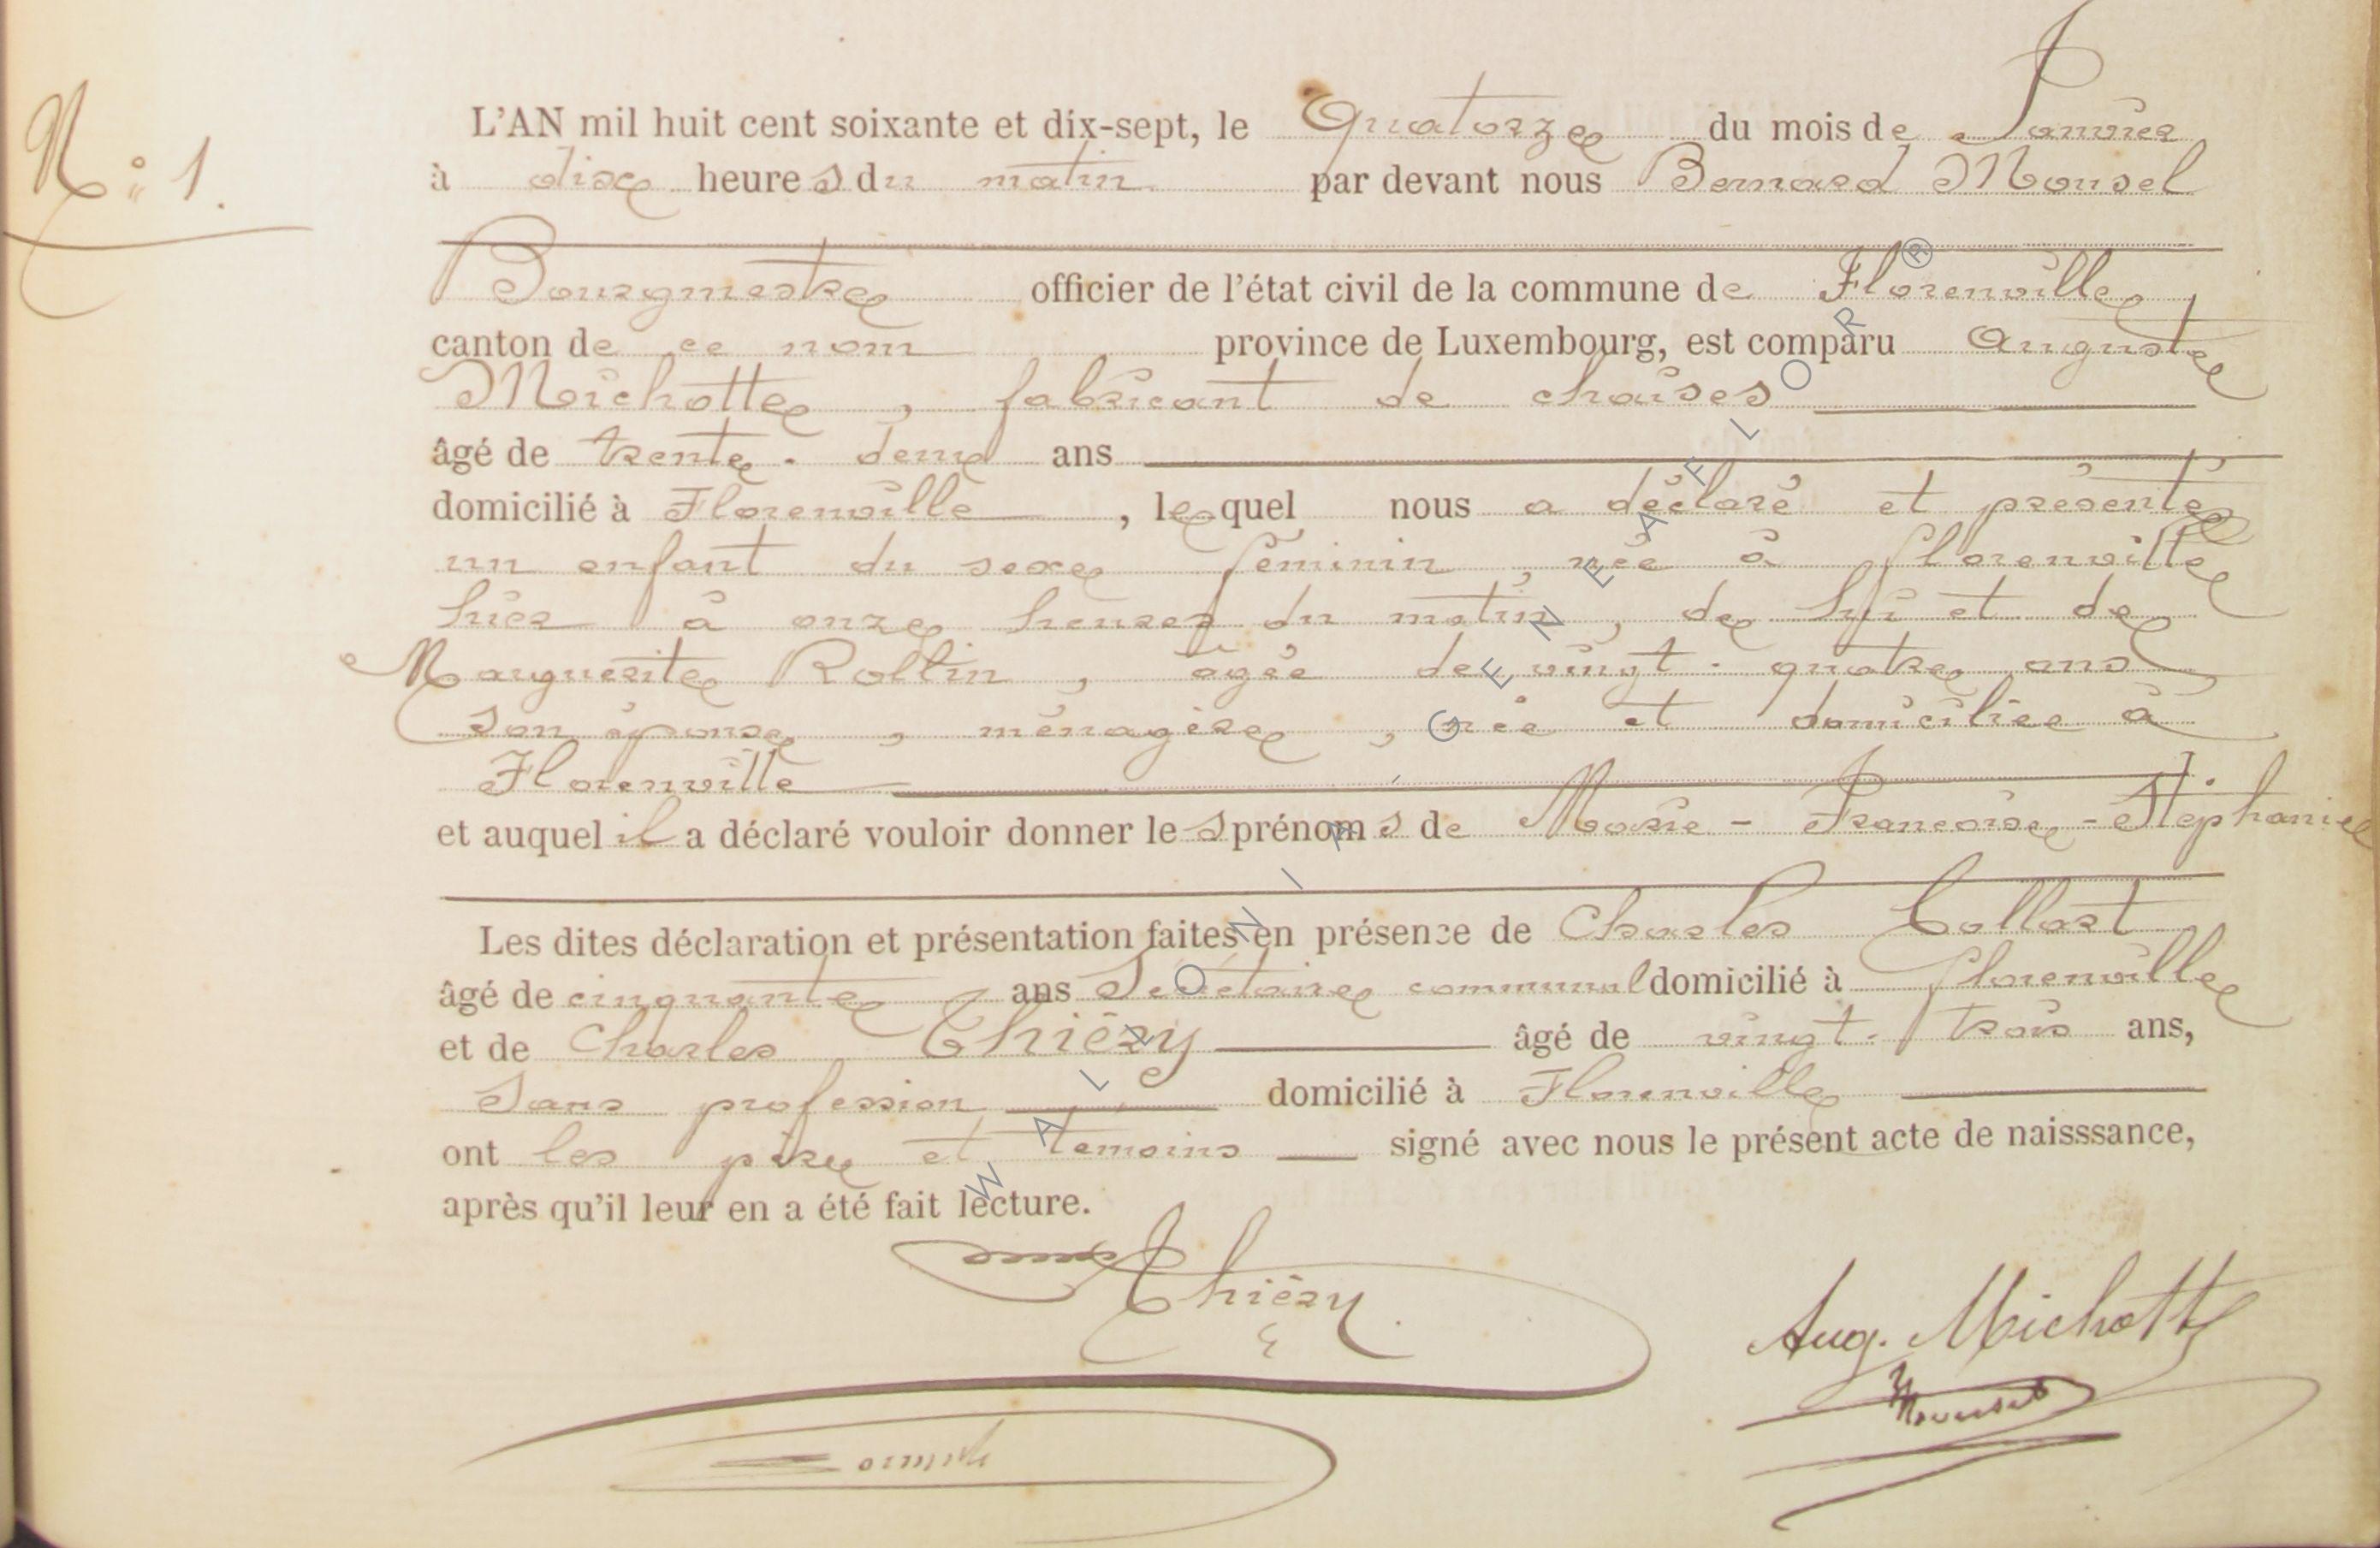 N° 1.
L'AN mil huit cent soixante et dix-sept, le Quatorze du mois de Janvier
à dix heures du matin par devant nous Bernard Mousel
Bourgmestre officier de l'état civil de la commune de Florenville,
canton de ce nom province de Luxembourg, est comparu Auguste
Michotte, fabricant de chaises
âgé de trente-deux ans
domicilié à Florenville, lequel nous a déclaré et présenté
un enfant du sexe féminin, née à florenville
hier à onze heures du matin, de lui et de
Marguerite Rollin, âgée de vingt-quatre ans
son épouse, ménagère, née et domiciliée à
Florenville
et auquel il a déclaré vouloir donner les prénoms de Marie - Françoise - Stéphanie
Les dites déclaration et présentation faites en présence de Charles Collart
âgé de cinquante ans Secrétaire communal domicilié à florenville
et de Charles Thiéry âgé de vingt-trois ans,
Sans profession domicilié à Florenville
ont les père et témoins signé avec nous le présent acte de naisssance,
après qu'il leur en a été fait lecture.
Thiéry
Aug. Michotte
Mousel
WALLONIA GENEAFLOR ®